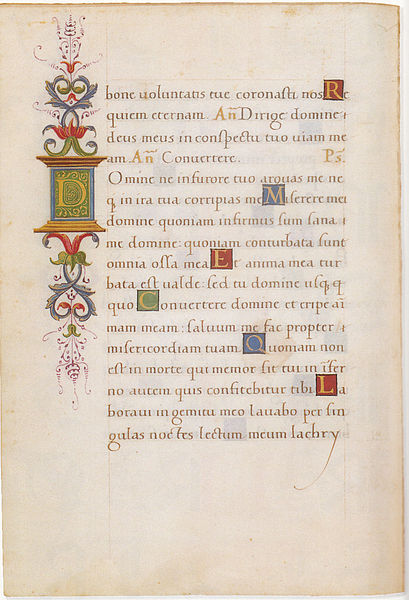 bone uoluntatis tue coronasti nos. Re
quiem eternam. An̄ Dirige domine
deus meus in conspectu tuo uiam me
am An̄ Conuertere. Ps.
Domine ne in furore tuo arguas me ne
q, in ira tua corripias me Miserere mei
domine quoniam infirmus sum sana
me domine: quoniam conturbata sunt
omnia ossa mea Et anima mea tur
bata est ualde: sed tu domine usq, q
quo Conuertere domine et eripe ani
mam meam: saluum me fac propter
misericordiam tuam. Quoniam non
est in morte qui memor sit tui in īfer
no autem quis confitebitur tibi La
boraui in gemitu meo lauabo per sin
gulas noctes lectum meum lachry